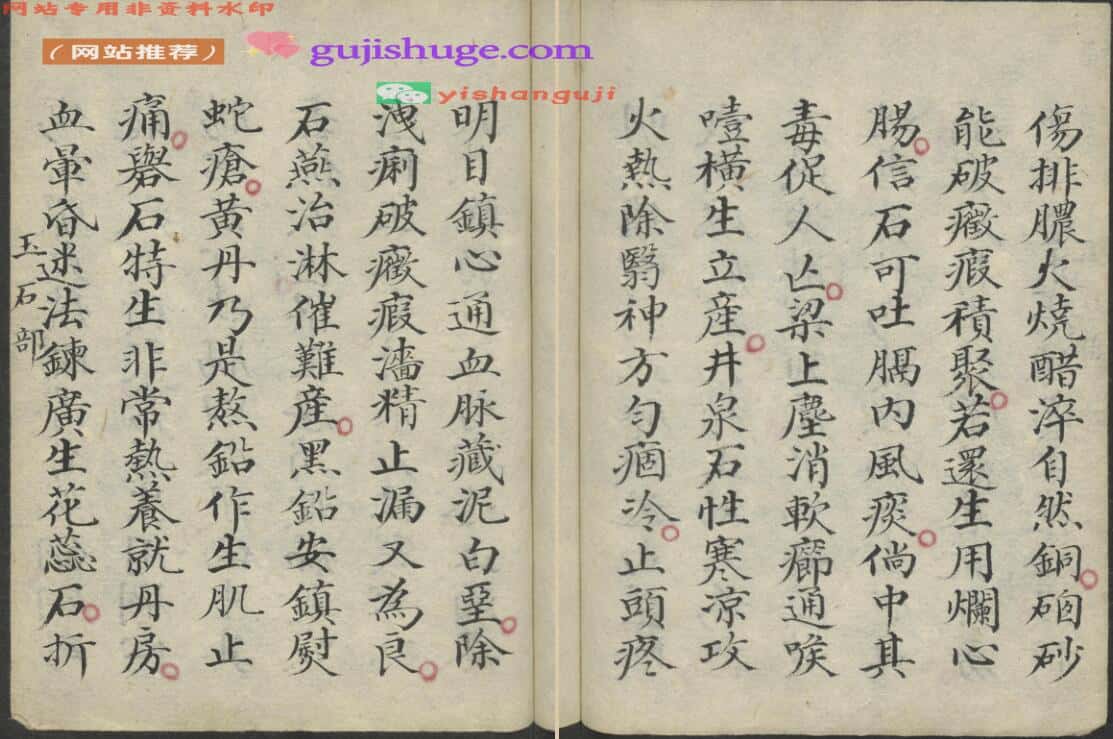 网站专用非资料水印
（网站推荐）
gujishuge.com
yishanguji
傷排膿火燒醋淬自然銅硇砂
能破癥瘕積聚若還生用爛心
腸信石可吐膈内風痰倘中其
毒促人亡梁上塵消軟癤通喉
噎横生立産井泉石性寒凉攻
火熱除翳神方匀痼冷止頭疼
明目鎮心通血脉藏泥白堊除
洩痢破癥瘕濇精止漏又為良
石燕治淋催難産黑鉛安鎮熨
蛇瘡黄丹乃是熬鉛作生肌止
痛礜石特生非常熱養就丹房
血暈昏迷法鍊廣生花蕊石折
玉石部